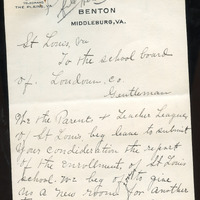 THE PLAINS, VA.
BENTON
MIDDLEBURG, VA.
St Louis, Va
To the school board
of Loudoun, Co.
Gentleman
We the Parent & Teacher League,
of St Louis beg leave to submit
your consideration the report
of the enrollment, of St Louis
school. We beg of to give
us a new room for another